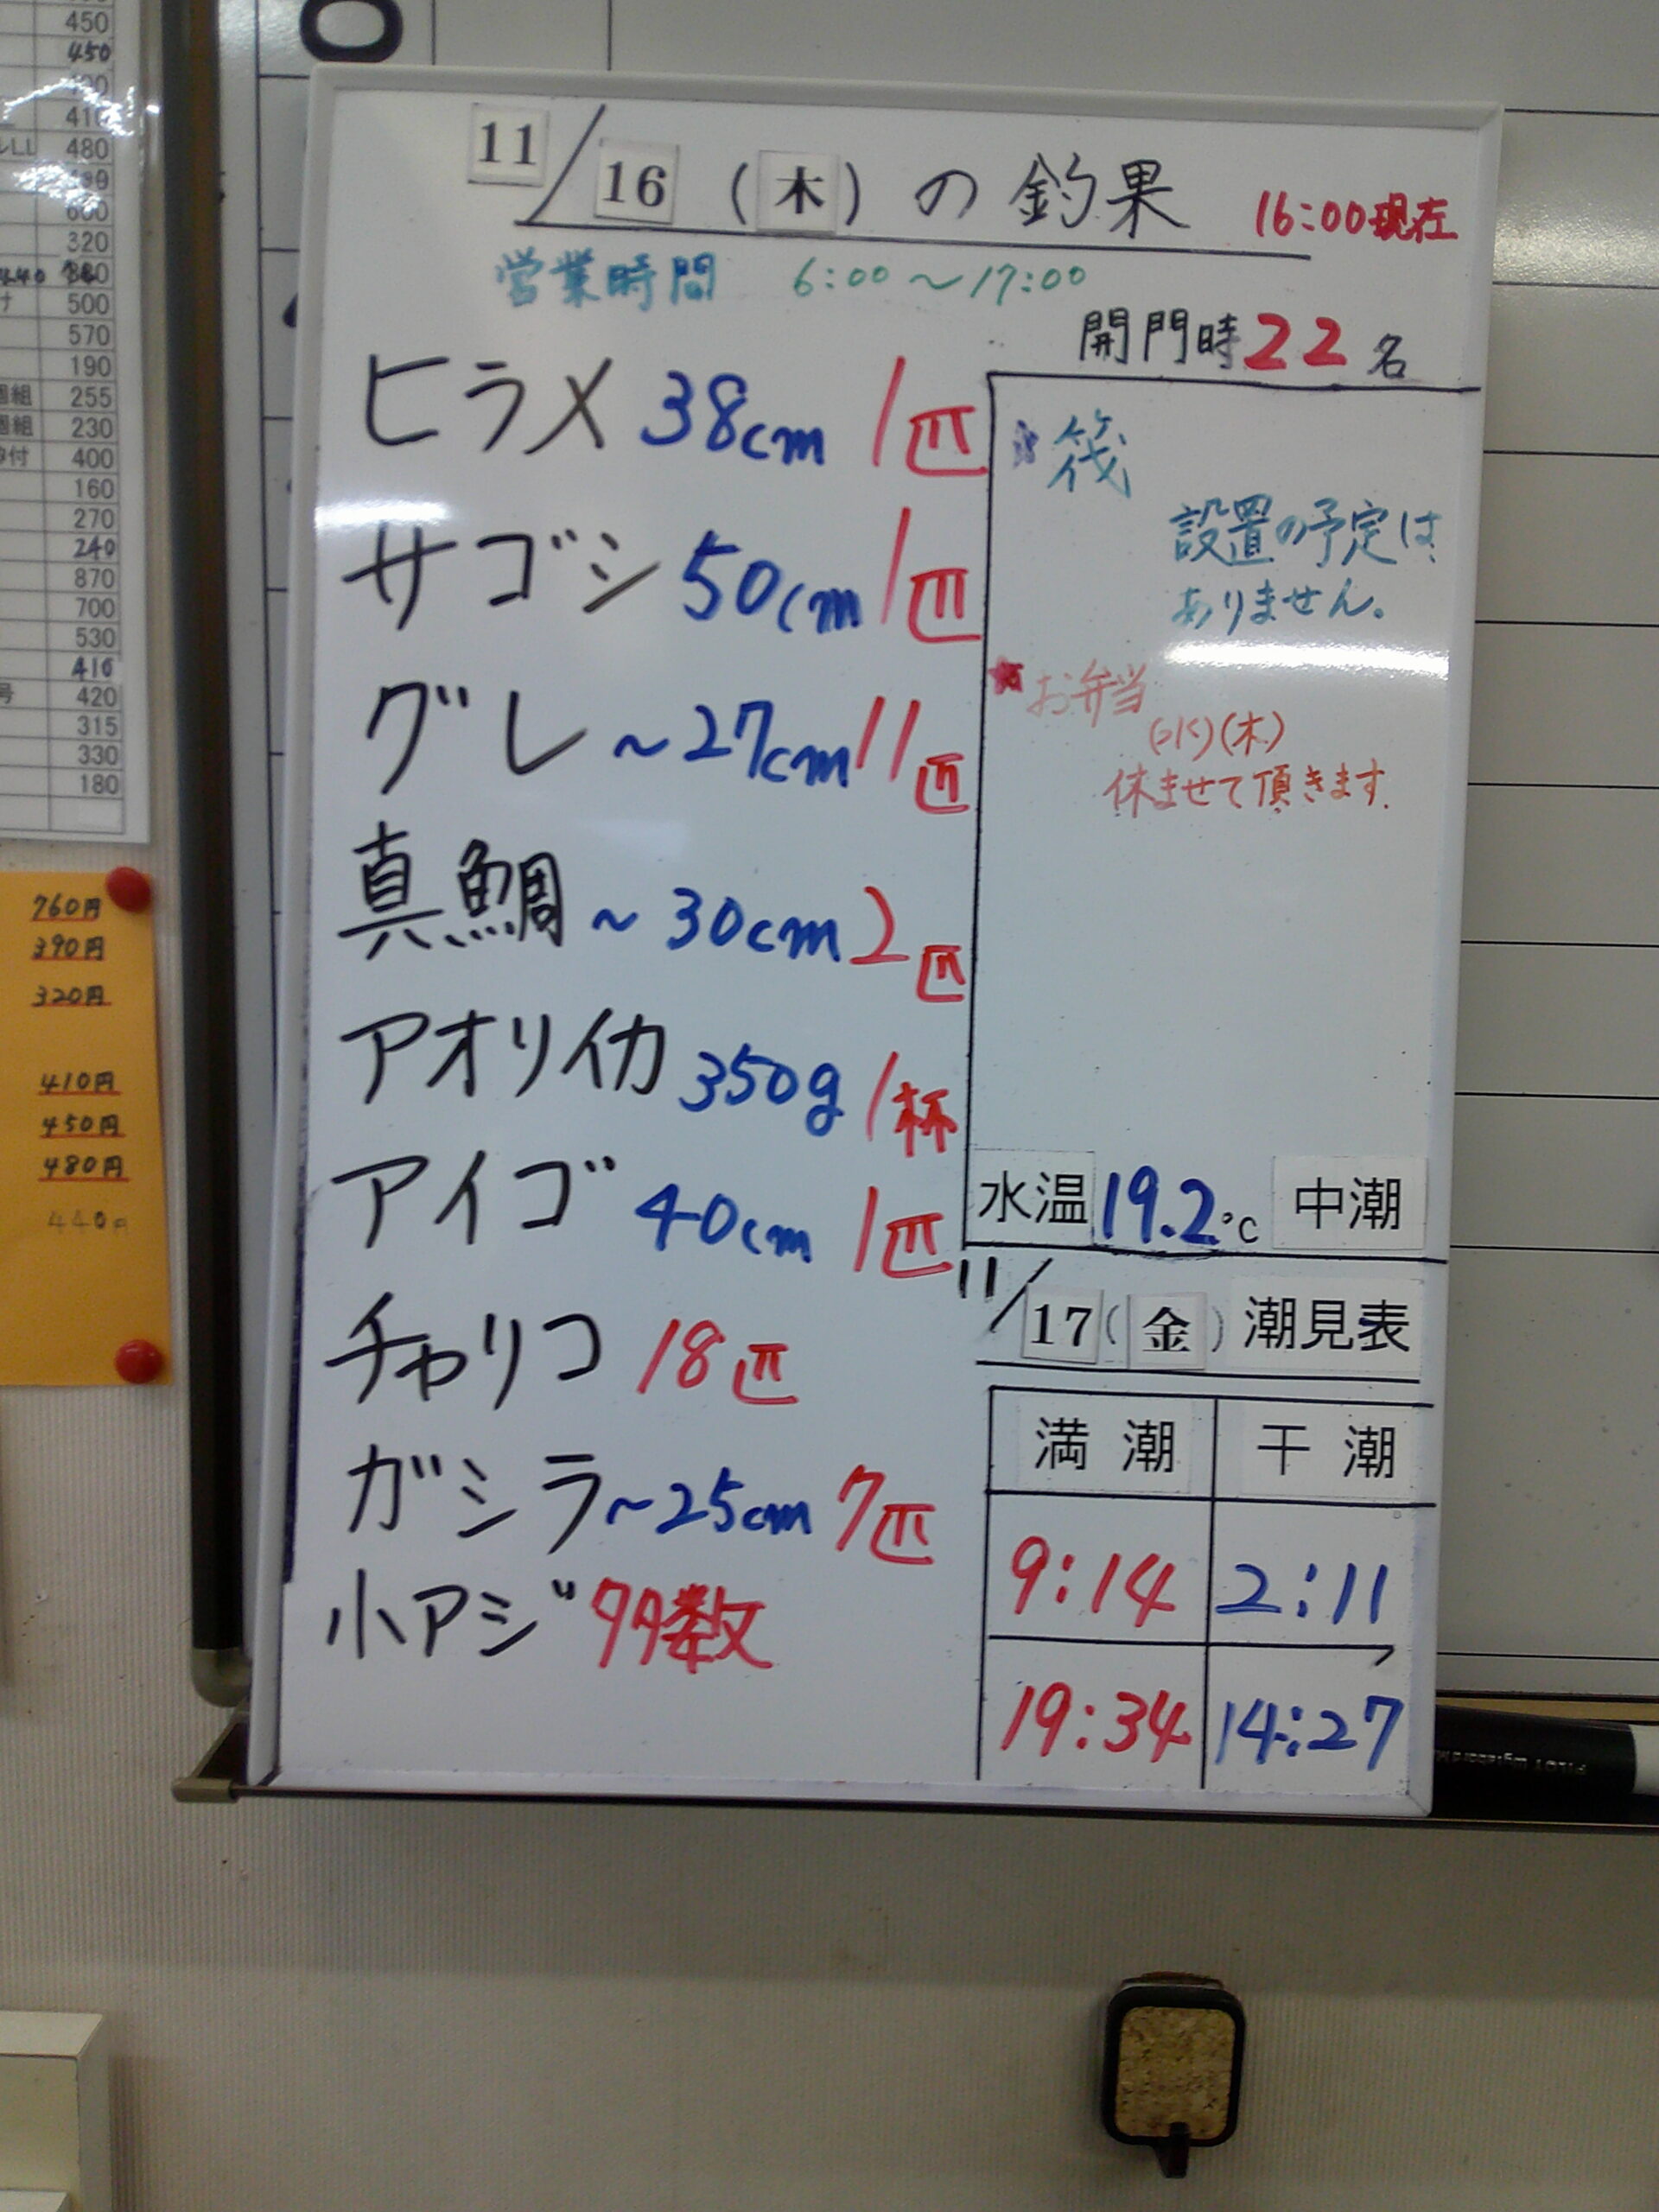 11/16(木)の釣果 16:00現在
営業時間 6:00～17:00
開門時22名
ヒラメ 38cm 1匹
サゴシ 50cm 1匹
グレ ~27cm 11匹
真鯛 ~30cm 2匹
アオリイカ 350g 1杯
アイゴ 40cm 1匹
チャリコ 18匹
ガシラ ~25cm 7匹
小アジ 多数
★筏
設置の予定は
ありません。
★お弁当
(水)(木)
休ませて頂きます.
水温 19.2℃ 中潮
11/17(金)潮見表
満潮 干潮
9:14 2:11
19:34 14:27
450
450
410
480
600
320
500
570
190
255
230
400
160
270
240
870
700
530
410
420
315
330
180
760円
390円
320円
410円
450円
480円
440円